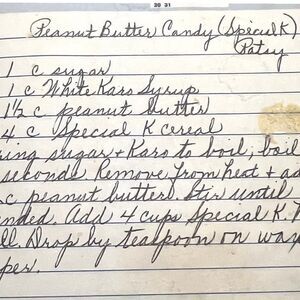 30 31
Peanut Butter Candy (Special K)
Patsy
1 c sugar
1 c White Karo Syrup
1½ c peanut butter
4 c Special K cereal
ing sugar + Karo to boil; boil
seconds. Remove from heat + ad
c peanut butter. Stir until
nded. Add 4 cups Special K.
ll. Drop by teaspoon on wax
per.